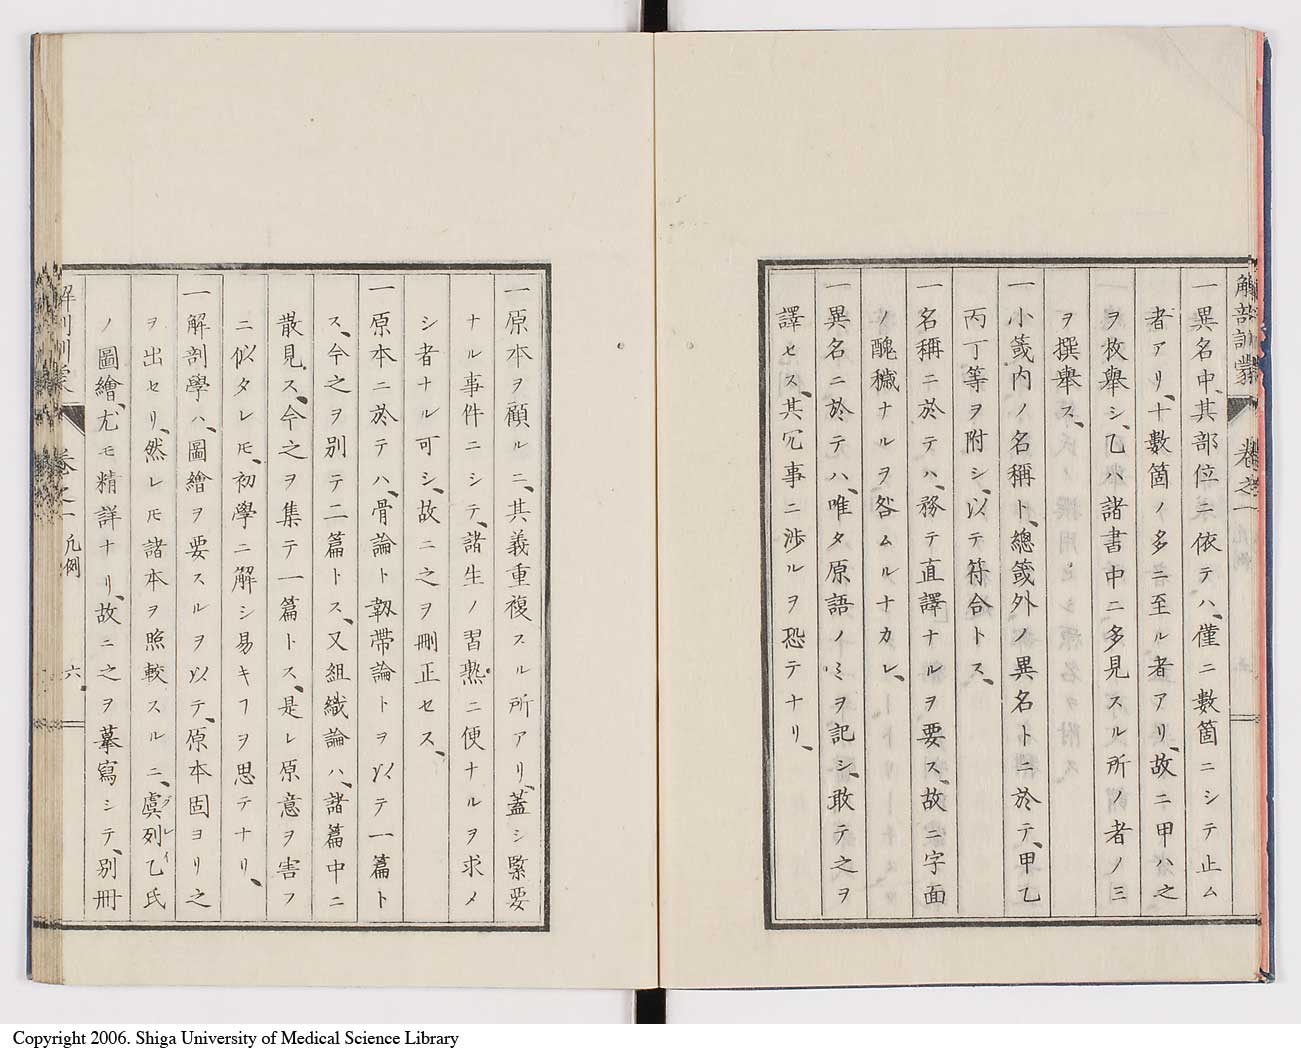 解剖訓蒙 卷之一 凡例
一異名中、其部位ニ依テハ、僅ニ數箇ニシテ止ム
者アリ、十數箇ノ多ニ至ル者アリ、故ニ甲ハ之
ヲ枚舉シ、乙ハ諸書中ニ多見スル所ノ者ノ三
ヲ撰舉ス、
一小箋內ノ名稱ト、總箋外ノ異名トニ於テ、甲乙
丙丁等ヲ附シ、以テ符合トス、
一名稱ニ於テハ、務テ直譯ナルヲ要ス、故ニ字面
ノ醜穢ナルヲ咎ムルナカレ、
一異名ニ於テハ、唯タ原語ノミヲ記シ、敢テ之ヲ
譯セス、其冗事ニ涉ルヲ恐テナリ、
一原本ヲ顧ルニ、其義重複スル所アリ、蓋シ緊要
ナル事件ニシテ、諸生ノ習熟ニ便ナルヲ求メ
シ者ナル可シ、故ニ之ヲ刪正セス、
一原本ニ於テハ、骨論ト韌帶論トヲ以テ一篇ト
ス、今之ヲ別テ二篇トス、又組織論ハ、諸篇中ニ
散見ス、今之ヲ集テ一篇トス、是レ原意ヲ害フ
ニ似タレ𪜈、初學ニ解シ易キフヲ思テナリ、
一解剖學ハ、圖繪ヲ要スルヲ以テ、原本固ヨリ之
ヲ出セリ、然レ𪜈諸本ヲ照較スルニ、虞列乙氏
グレイ
ノ圖繪、尤モ精詳ナリ、故ニ之ヲ摹寫シテ、別冊
解剖訓蒙 卷之一 凡例 六
Copyright 2006. Shiga University of Medical Science Library